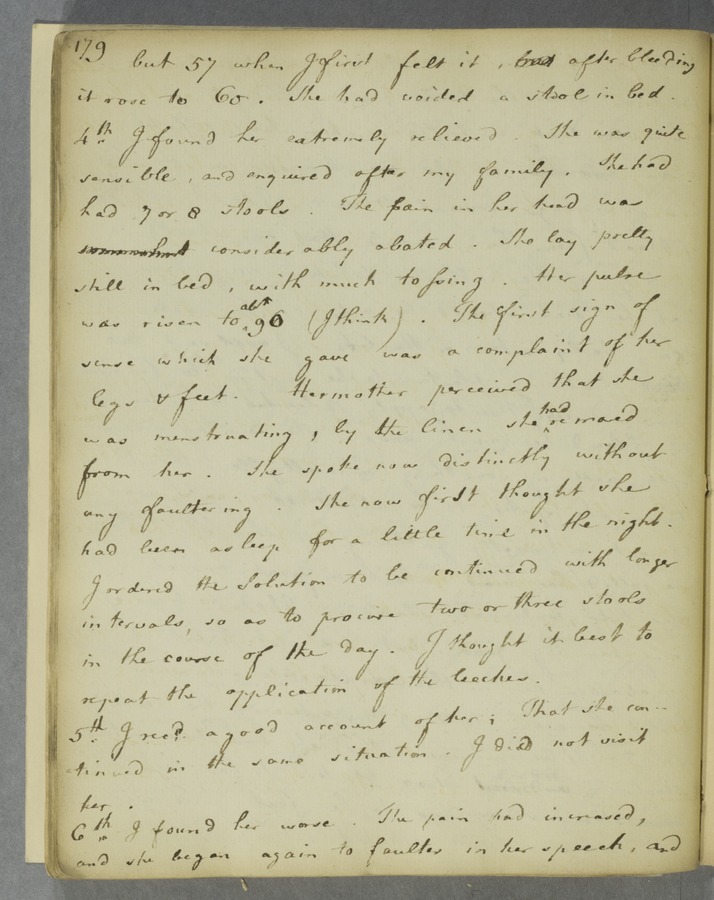 179
but 57 when I first felt it, but after bleeding
it rose to 60. She had voided a stool in bed.
4th I found her extremely relieved. She was quite
sensible, and enquired after my family. She had
had 7 or 8 stools. The pain in her head was
somewhat considerably abated. She lay pretty
still in bed, with much tossing. Her pulse
was risen to abt 96 (I think). The first sign of
sense which she gave was a complaint of her
legs & feet. Her mother perceived that she
was menstruating, by the linen she had removed
from her. She spoke now distinctly without
any faultering. She now first thought she
had been asleep for a little time in the night.
I ordered the Solution to be continued with longer
intervals, so as to procure two or three stools
in the course of the day. I thought it best to
repeat the application of the leeches.
5th I recd. a good account of her; That she con-
tinued in the same situation. I did not visit
her.
6th I found her worse. The pain had increased,
and she began again to faulter in her speech, and